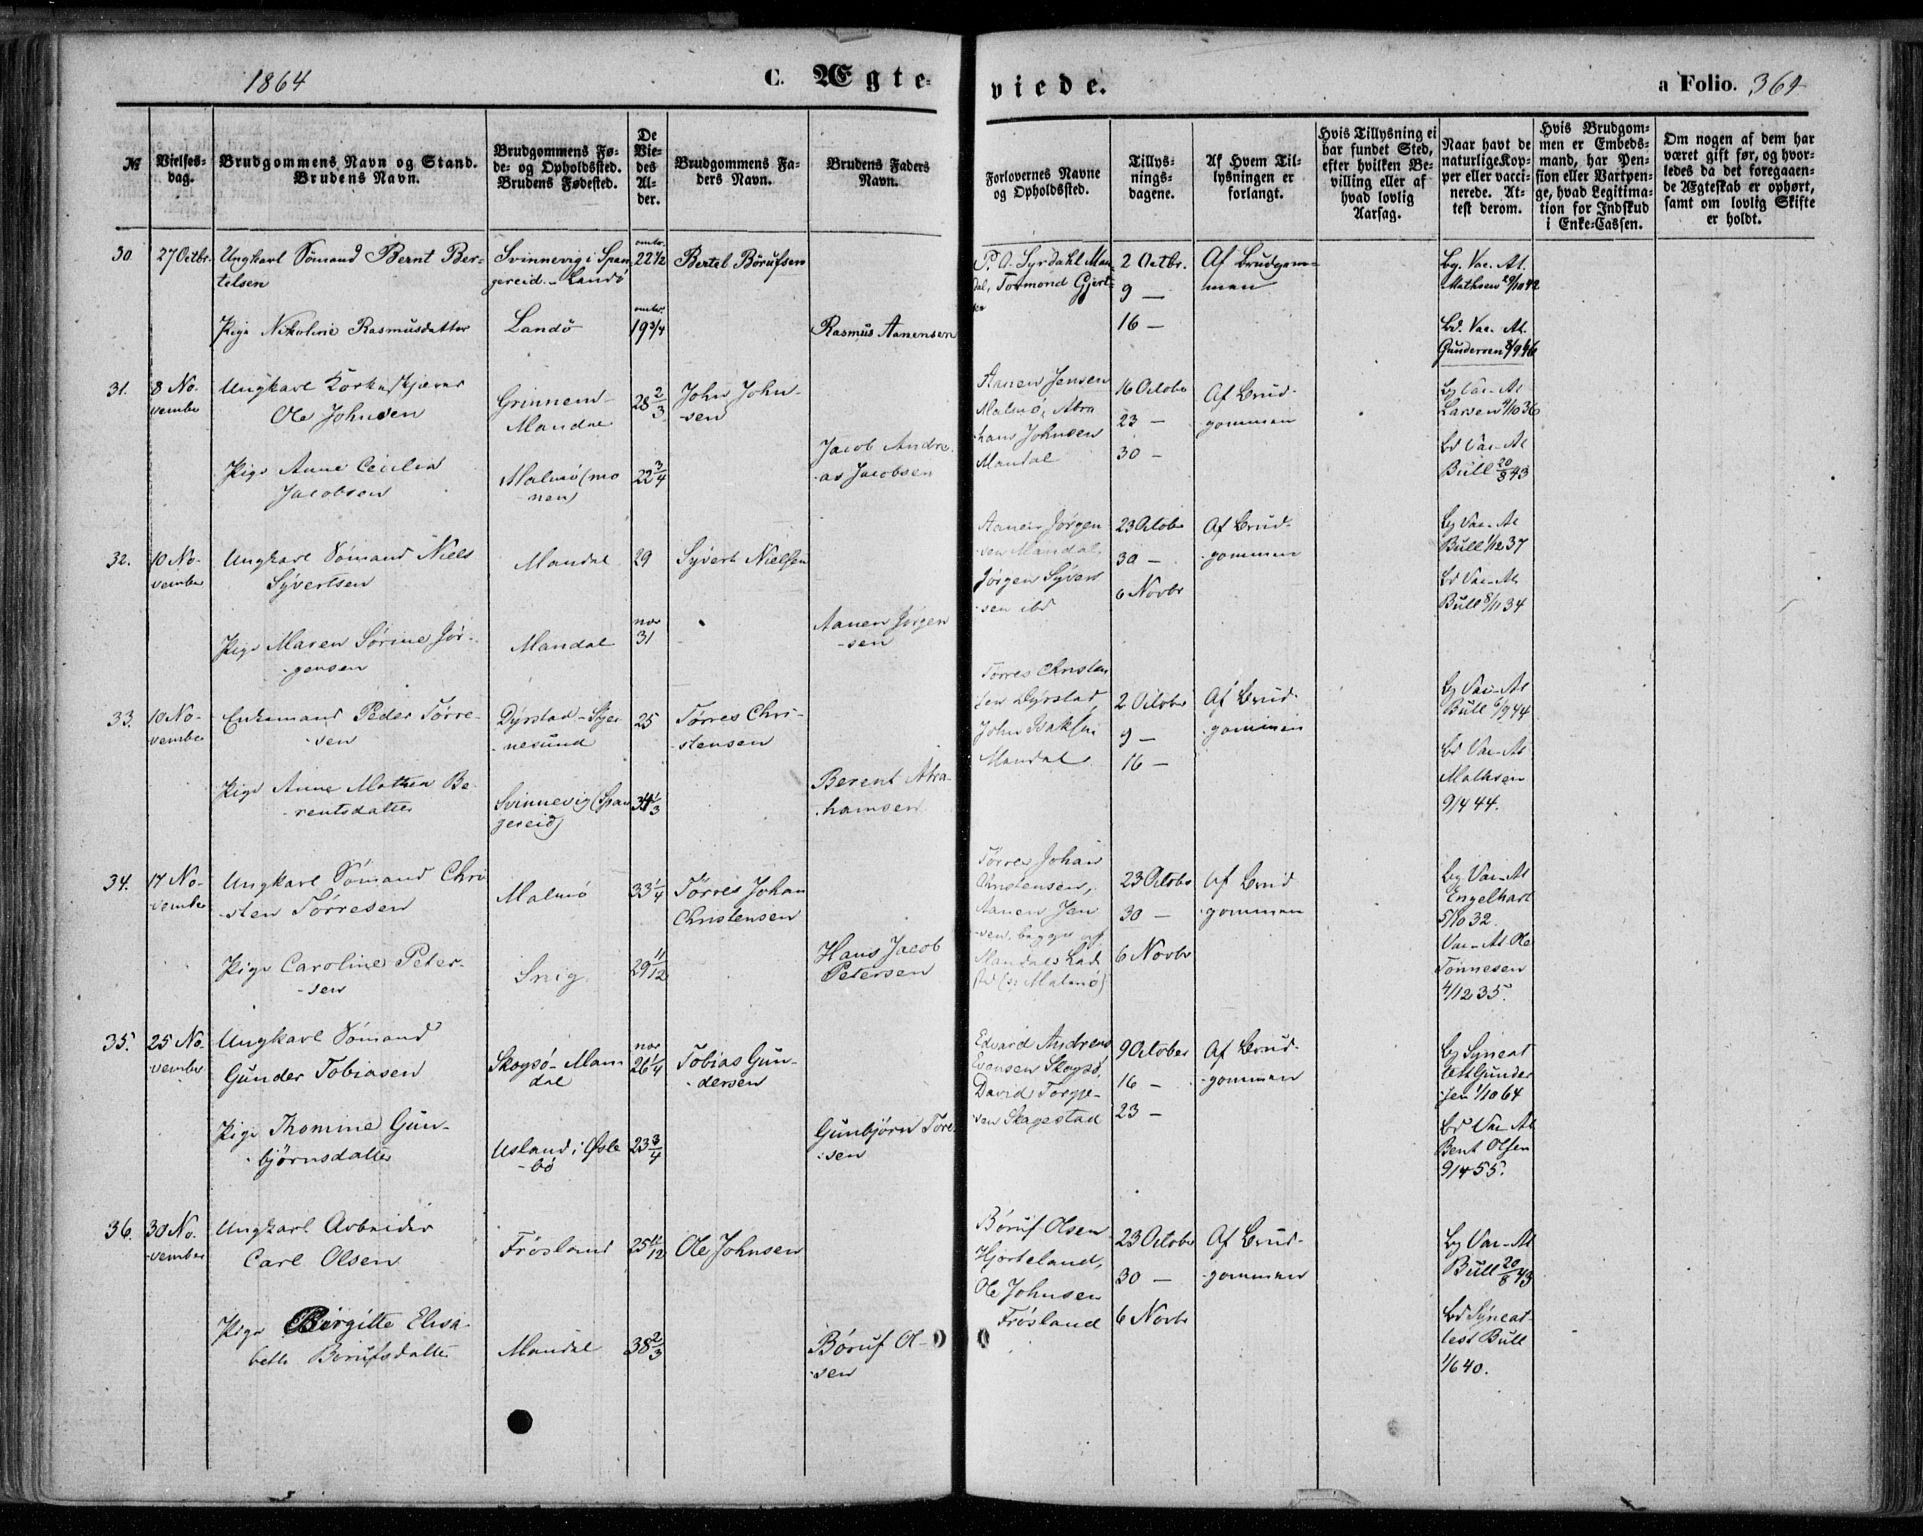 1864
C. Ægteviede.
a Folio. 364
№
Vielses-
dag.
Brudgommens Navn og Stand.
Brudens Navn.
Brudgommens Fø-
de- og Opholdssted.
Brudens Fødested.
De
Vie-
des
Al-
der.
Brudgommens Fa-
ders Navn.
Brudens Faders
Navn.
Forlovernes Navne
og Opholdssted.
Tillys-
nings-
dagene.
Af Hvem Til-
lysningen er
forlangt.
Hvis Tillysning ei
har fundet Sted,
efter hvilken Be-
villing eller af
hvad lovlig
Aarsag.
Naar havt de
naturlige Kop-
per eller vacci-
nerede. At-
test derom.
Hvis Brudgom-
men er Embeds-
mand, har Pen-
sion eller Vartpen-
ge, hvad Legitima-
tion for Indskud
i Enke-Cassen.
Om nogen af dem har
været gift før, og hvor-
ledes da det foregaaen-
de Ægteskab er ophørt,
samt om lovlig Skifte
er holdt.
30
27 Octbr.
Ungkarl Sömand Bernt Ber-
telsen
Svinnevig i Span
gereid - Landö
omtr.
22 1/2
Bertel Börufsen
P. O. Syrdahl Man
dal, Tormond Gjert-
2 Octbr.
9 —
16 —
Af Brudgom-
men
Bg. Vac. At.
Mathsen 29/10 42
Pige Nikoline Rasmusdatter
Landö
omtr.
19 3/4
Rasmus Aanensen
Bd. Vac. At.
Gundersen 8/9 46
31.
8 No-
vember
Ungkarl
Ole Johnsen
Grinnem-
Mandal
28 2/3
John John-
-sen
Aanen Jensen
Malmö, Abra
ham Johnsen
Mandal
16 Octobr
23 —
30 —
Af Brud-
gommen
Bg Vac-At
Larsen 4/10 36
Pige Anne Cecilia
Jacobsen
Malmö
22 3/4
Jacob Andre-
as Jacobsen
Bd Vac-At
Bull 20/8 43
32.
10 No-
vember
Ungkarl Sömand Niels
Syvertsen
Mandal
29
Syvert Nielsen
Aanen Jörgen
sen Mandal,
Jörgen Syvert
-sen ibd
23 Octobr
30 —
6 Novbr
Af Brud-
gommen
Bg Vac-At
Bull 1/12 37
Pige Maren Sörine Jör-
-gensen
Mandal
nær
31
Aanen Jörgen
-sen
Bd Vac-At
Bull 8/11 34
33.
10 No-
vember
Enkemand Peder Törre-
-sen
Dyrstad - Skjer
-nesund
25
Törres Chri-
-stensen
Törres Christen
sen Dyrstad,
John Isaksen
Mandal
2 October
9 —
16 —
Af Brud-
-gommen
Bg Vac-At
Bull 6/9 44
Pige Anne Mathea Be-
-rentsdatter
Svinnevig (Span
gereid)
34 1/3
Berent Abra-
-hamsen
Bd Vac-At
Mathsen
9/4 44.
34.
17 No-
vember
Ungkarl Sömand Chri
-sten Törresen
Malmö
33 1/4
Törres Johan
Christensen
Törres Johan
Christensen,
Aanen Jen
-sen, begge af
Mandals Lad
sted (: Malmö)
23 Octobr
30 —
6 Novbr
Af Brud
-gommen
Bg Vac-At
Engelhart
5/10 32
Pige Caroline Peter-
-sen
Snig
29 11/12
Hans Jacob
Petersen
Vac-At Ole
Tönnesen
4/12 35.
35.
25 No-
vember
Ungkarl Sömand
Gunder Tobiasen
Skogsö - Man
dal
nær
26 1/4
Tobias Gun-
-dersen
Edvard Andreas
Evensen Skogsö,
David Torgje-
-sen Skagestad
9 October
16 —
23 —
Af Brud-
-gommen
Bg Syneat
test Gunder
sen 1/10 64
Pige Thomine Gun-
-björnsdatter
Usland i Øsle
-bö
23 3/4
Gunbjörn Tore
-sen
Bd Vac-At
Bent Olsen
9/4 55.
36.
30 No-
vember
Ungkarl Arbeider
Carl Olsen
Frösland
25 11/12
Ole Johnsen
Böruf Olsen
Hjorteland,
Ole Johnsen
Frösland
23 October
30 —
6 Novbr
Af Brud-
-gommen
Bg Vac-At
Bull 20/8 43
Pige Birgitte Elisa-
beth Börufsdatter
Mandal
38 2/3
Böruf Ol-
-sen
Bd Syneat-
test Bull
1/6 40.